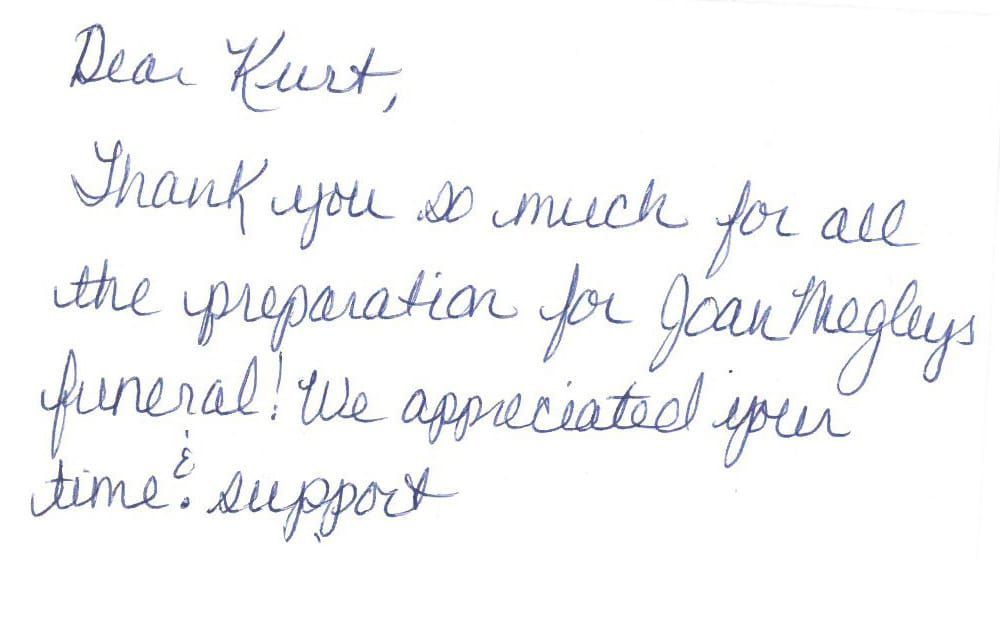 Dear Kurt,
Thank you so much for all
the preparation for Joan Megleys
funeral! We appreciated your
time & support